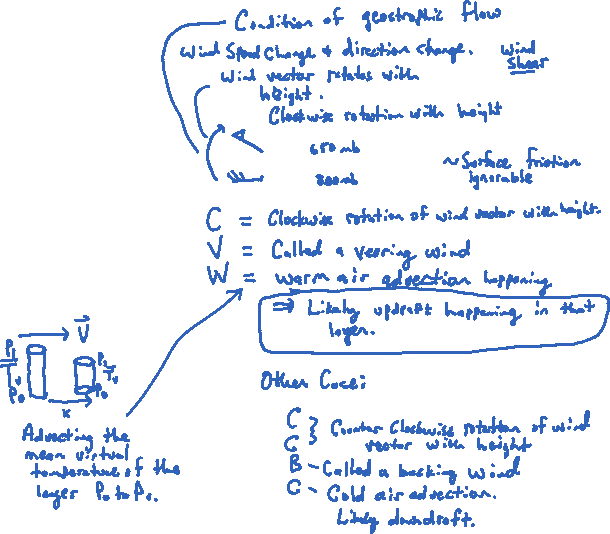 Condition of geostrophic flow
Wind Speed Change & direction change. Wind Shear
Wind vector rotates with height.
Clockwise rotation with height
650 mb
800 mb
~ Surface friction ignorable
C = Clockwise rotation of wind vector with height.
V = Called a veering wind
W = warm air advection happening
⇒ Likely updraft happening in that layer.
V
P₁ P₁
T̄ᵥ T̄ᵥ
P₀ P₀
x
Advecting the
mean virtual
temperature of the
layer P₀ to P₁.
Other Case:
C } Counter Clockwise rotation of wind
C } vector with height
B - Called a backing wind
C - Cold air advection.
Likely downdraft.